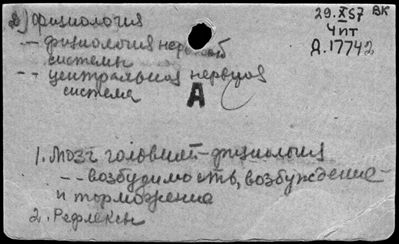 2) физиология
-- физиология нервной
системы
-- центральная нервная
система
А
29.X57 ВК
Чпт
Д.17742
1. Мозг головной-физиология
-- возбудимость, возбуждение
и торможение
2. Рефлексы